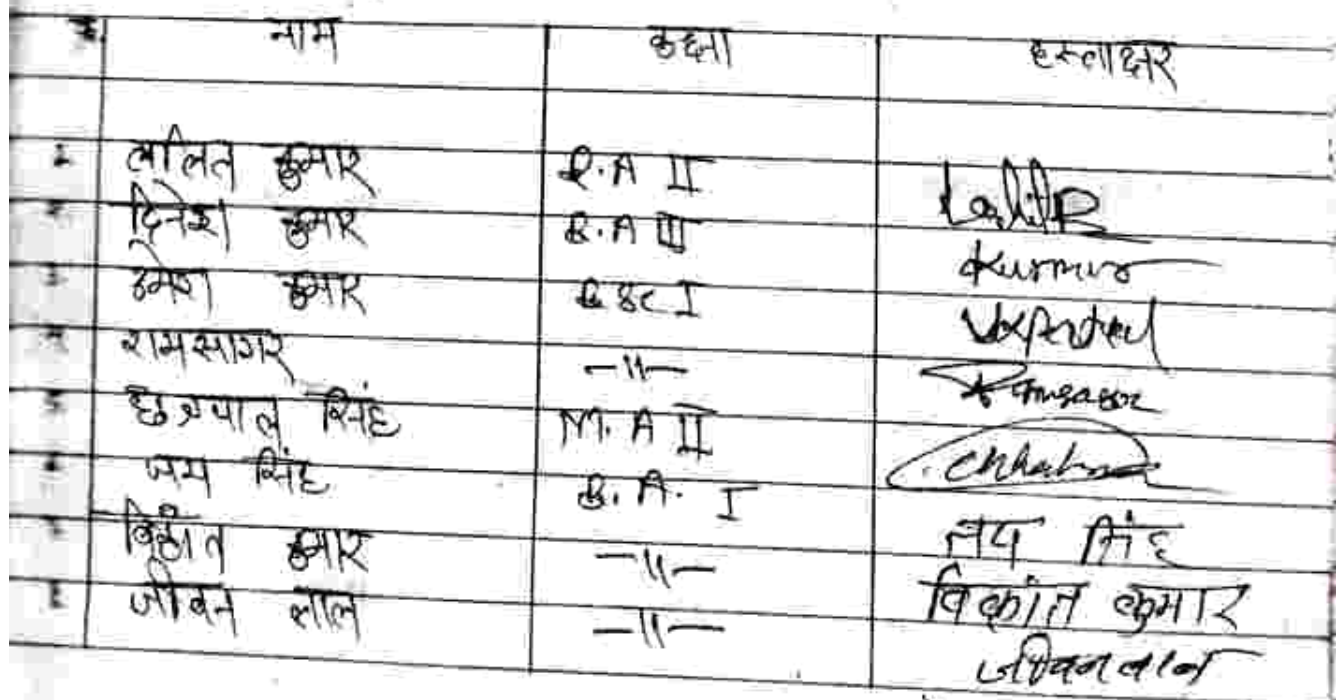 क्र. नाम कक्षा हस्ताक्षर
ललित कुमार B.A II Lalit
दिनेश कुमार B.A III Kumar
उमेश कुमार B Sc I
रामसागर —11— Ramsagar
छत्रपाल सिंह M.A II Chhatra
जय सिंह B.A. I जय सिंह
विक्रांत कुमार —11— विक्रांत कुमार
जीवन लाल —11— जीवन लाल